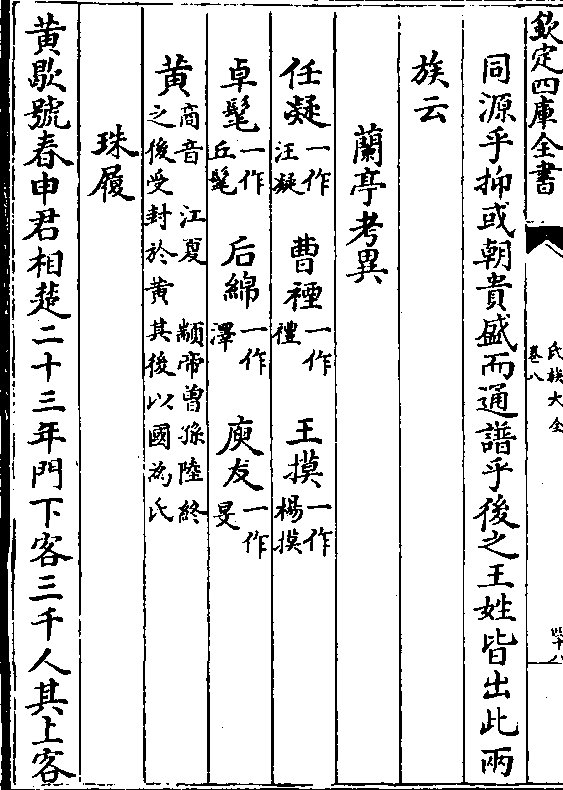 欽定四庫全書
氏族大全
卷八
同源乎抑或朝貴盛而通譜乎後之王姓皆出此兩
族云
蘭亭考異
任凝一作汪凝 曹禋一作禮 王摸一作楊摸
卓髦一作丘髦 后綿一作澤 庾友一作旻
黄商音 江夏 顓帝曽孫陸終之後受封於黄其後以國為氏
珠履
黄歇號春申君相楚二十三年門下客三千人其上客